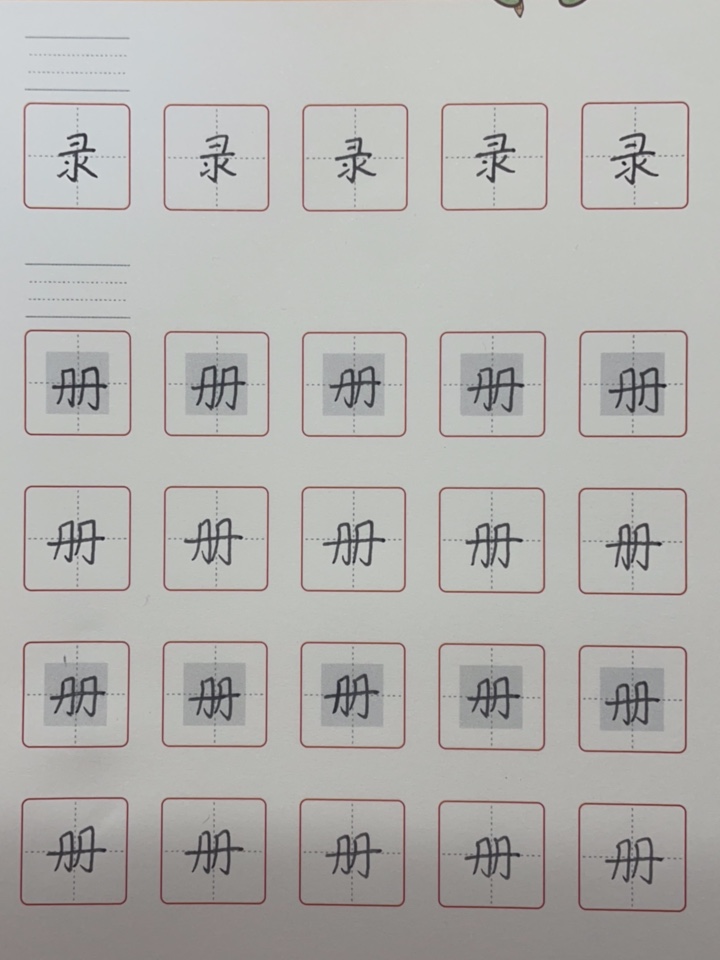 录 录 录 录 录
册 册 册 册 册
册 册 册 册 册
册 册 册 册 册
册 册 册 册 册